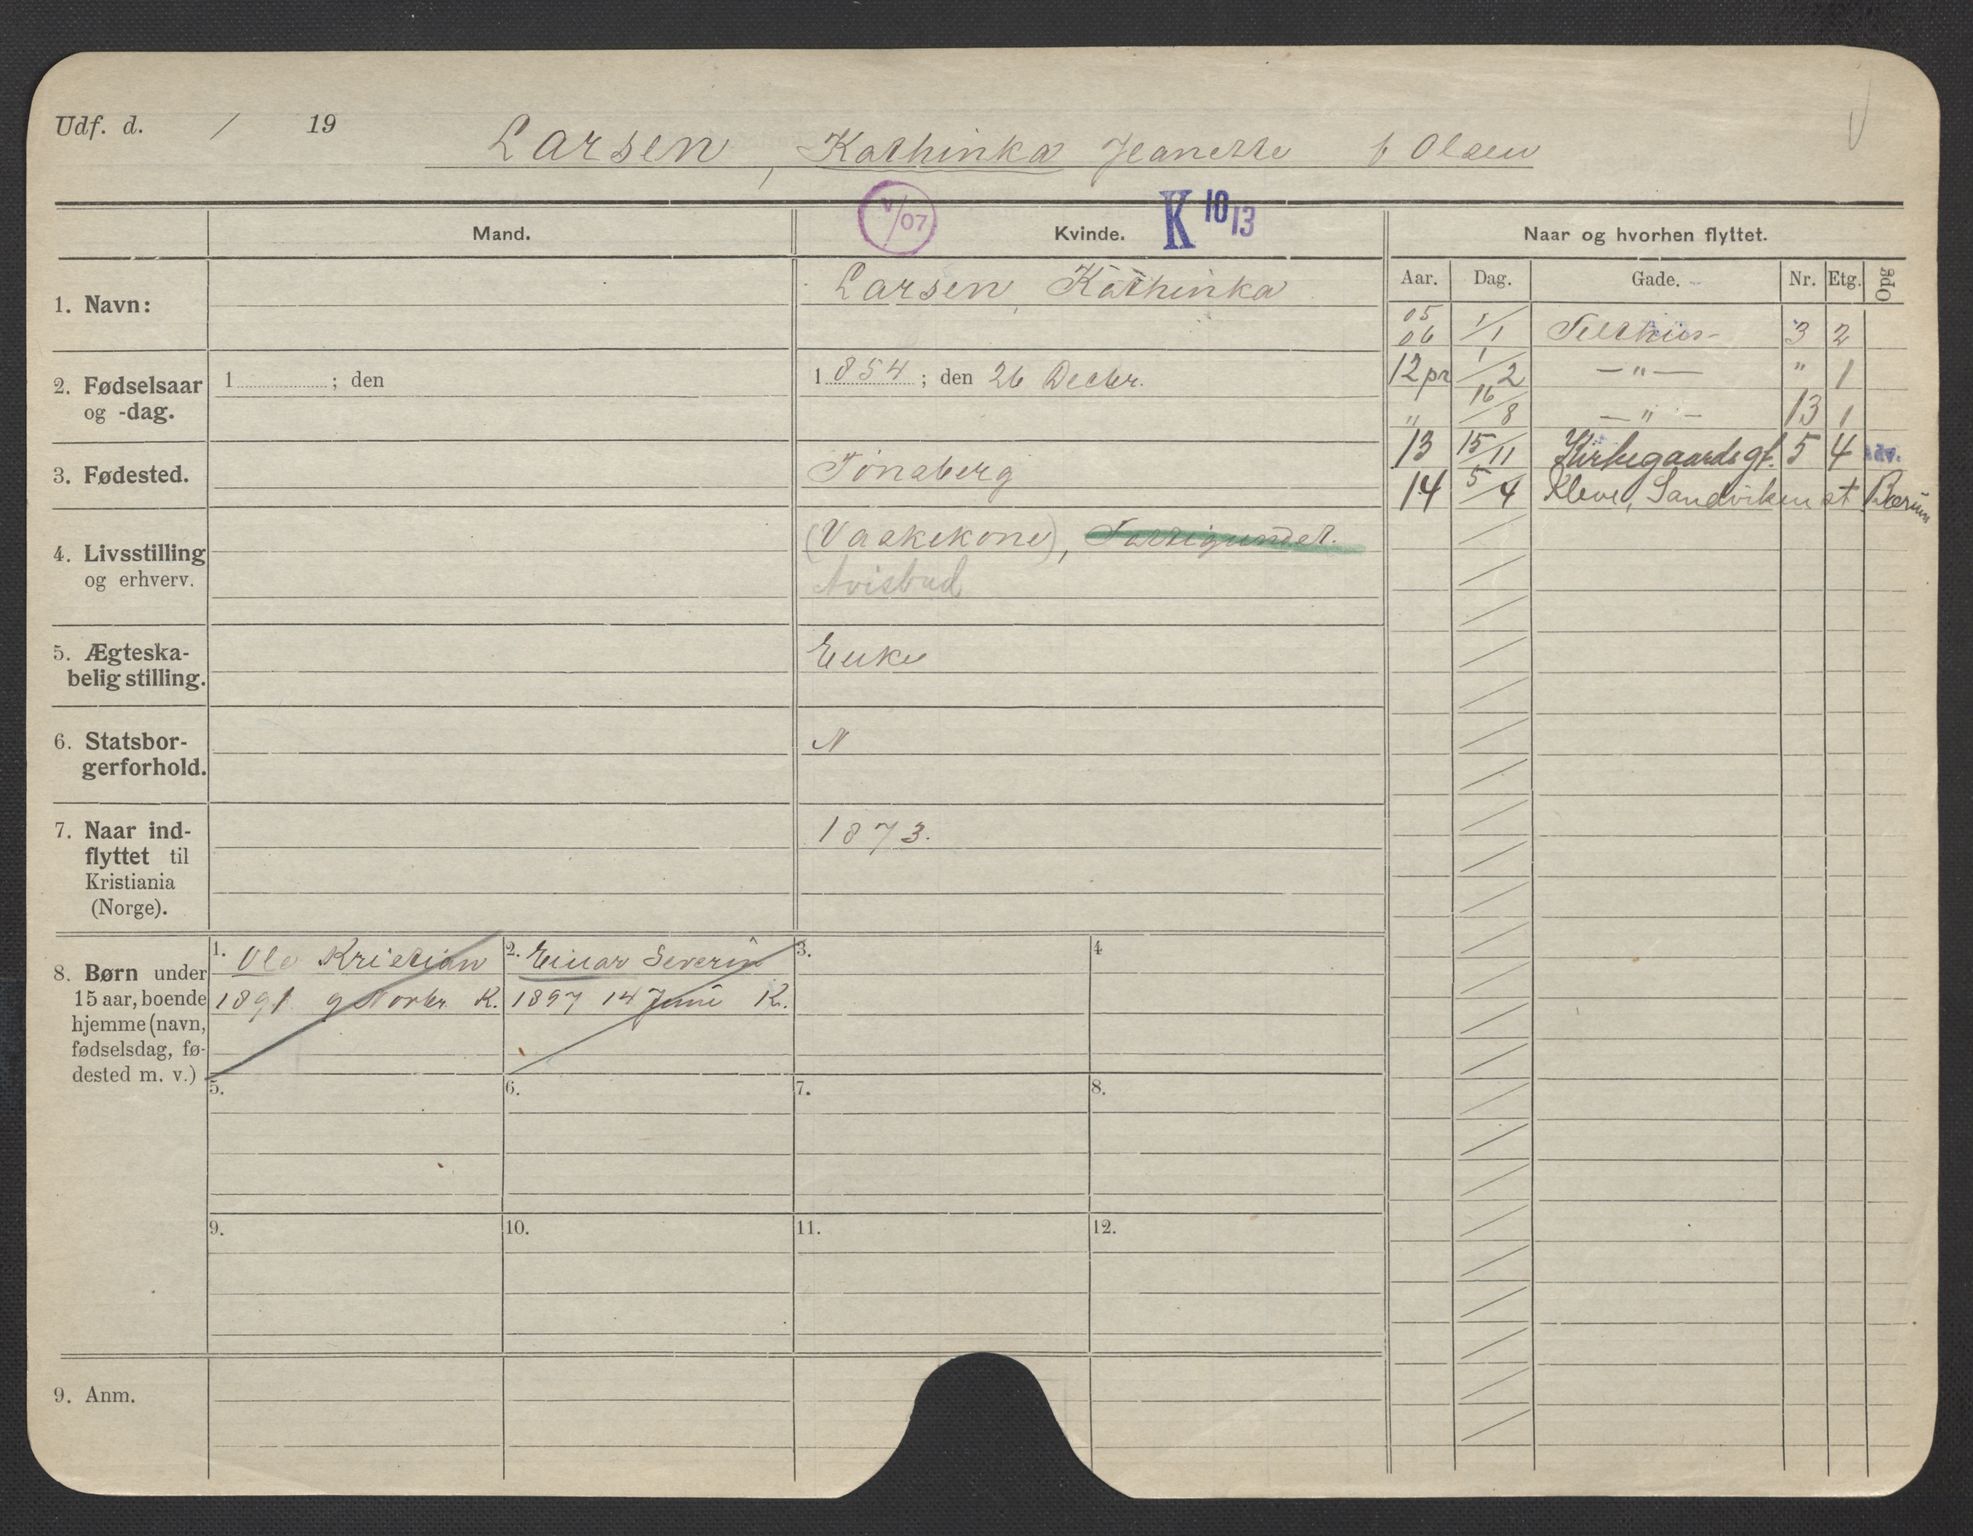 Udf. d. / 19
Larsen, Kathinka Jeanette f Olsen
V/07
K 10/13
Mand. Kvinde. Naar og hvorhen flyttet.
Aar. Dag. Gade. Nr. Etg. Opg
1. Navn: Larsen, Kathinka
05
06 1/1 Telthus- 3 2
12 pr 1/2 —"— " 1
" 16/8 —"— 13 1
13 15/11 Kirkegaardsgt. 5 4
14 5/4 Kleve, Sandviken st Bærum
2. Fødselsaar
og -dag.
1 ; den
1 854 ; den 26 Decbr.
3. Fødested. Tønsberg
4. Livsstilling
og erhverv.
(Vaskekone), Fattigunderst.
Avisbud
5. Ægteska-
belig stilling.
Enke
6. Statsbor-
gerforhold.
N
7. Naar ind-
flyttet til
Kristiania
(Norge).
1873.
8. Børn under
15 aar, boende
hjemme (navn,
fødselsdag, fø-
dested m. v.)
1. Ole Kristian
1891 9 Novbr. K.
2. Einar Severin
1897 14 Juni K.
3.
4
5.
6.
7.
8.
9.
10.
11.
12.
9. Anm.